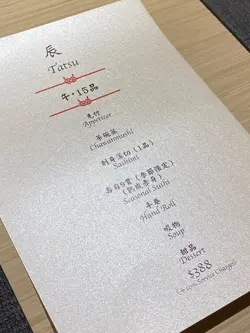 辰
Tatsu
午・15品
先付
Appetizer
茶碗蒸
Chawanmushi
刺身薄切 (1品)
Sashimi
壽司9貫 (季節限定)
(熟成赤身)
Seasonal Sushi
手卷
Hand Roll
吸物
Soup
甜品
Dessert
$388
(+10% Service Charges)